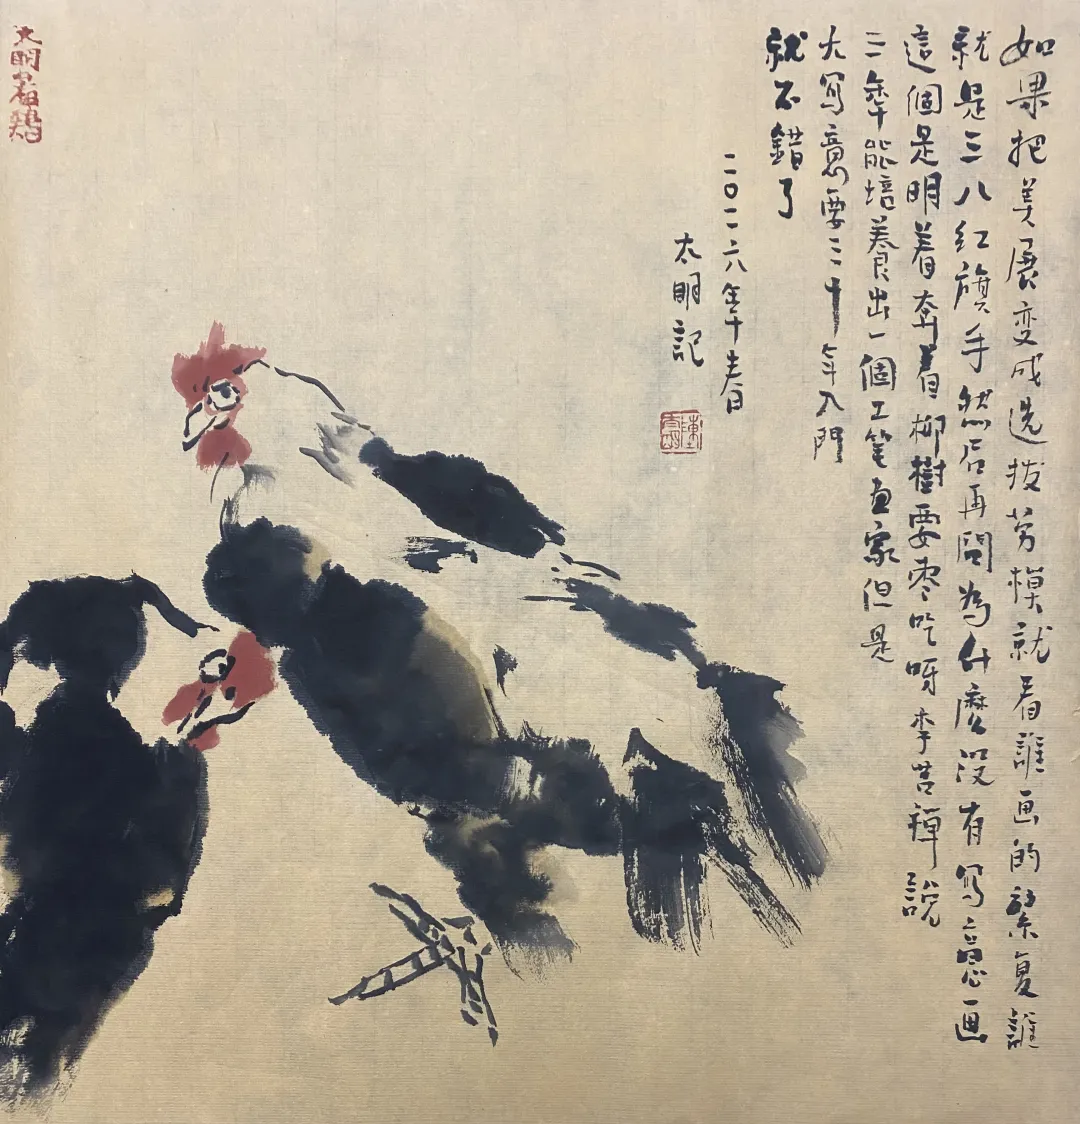 如果把美展变成选拔劳模就看誰画的繁复誰
就是三八红旗手然后再問為什麼没有写意画
這個是明着奔着柳樹要枣吃呀 李苦禅説
三年能培養出一個工笔画家但是
大写意要三十年入門
就不錯了
二〇二六年春
太明記